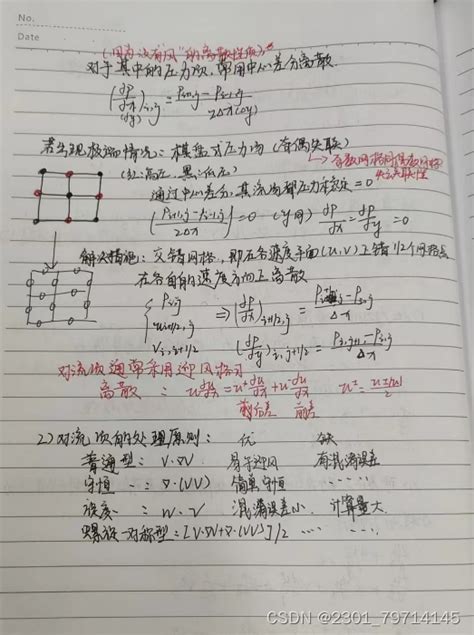 No.
Date
(因为没有"风"的离散性质)
对于其中的压力项,常用中心差分离散.
(dp/dx)i,j (dy) = Pi+1,j - Pi-1,j / 2Δx(Δy)
若出现极端情况:棋盘状压力场(奇偶失联)
(红:高压,黑:低压)
通过中心差分,其流场都压力梯度=0
(Pi+1,j - Pi-1,j / 2Δx) = 0 (y同) dp/dx = dp/dy = 0
解决措施:交错网格,即在各速度平面(u,v)上错1/2个网格
在各自的速度方向上离散
Pi,j
ui+1/2,j ⇒ (dp/dx)i+1/2,j = Pi+1,j - Pi,j / Δx
vi,j+1/2 (dp/dy)i,j+1/2 = Pi,j+1 - Pi,j / Δx
对流项通常采用迎风格式
离散: u du/dx = u⁺ du/dx + u⁻ du/dx u± = u±|u| / 2
后差 前差
2)对流项的处理原则: 优 缺
普通型: V·∇V 易于迎风 有混淆误差
守恒: ∇·(VV) 简单守恒 ......
: w·V 混淆误差小 计算量大
螺旋-对称型 = [V·∇V+∇·(VV)]/2 ...... ......
CSDN @2301_79714145